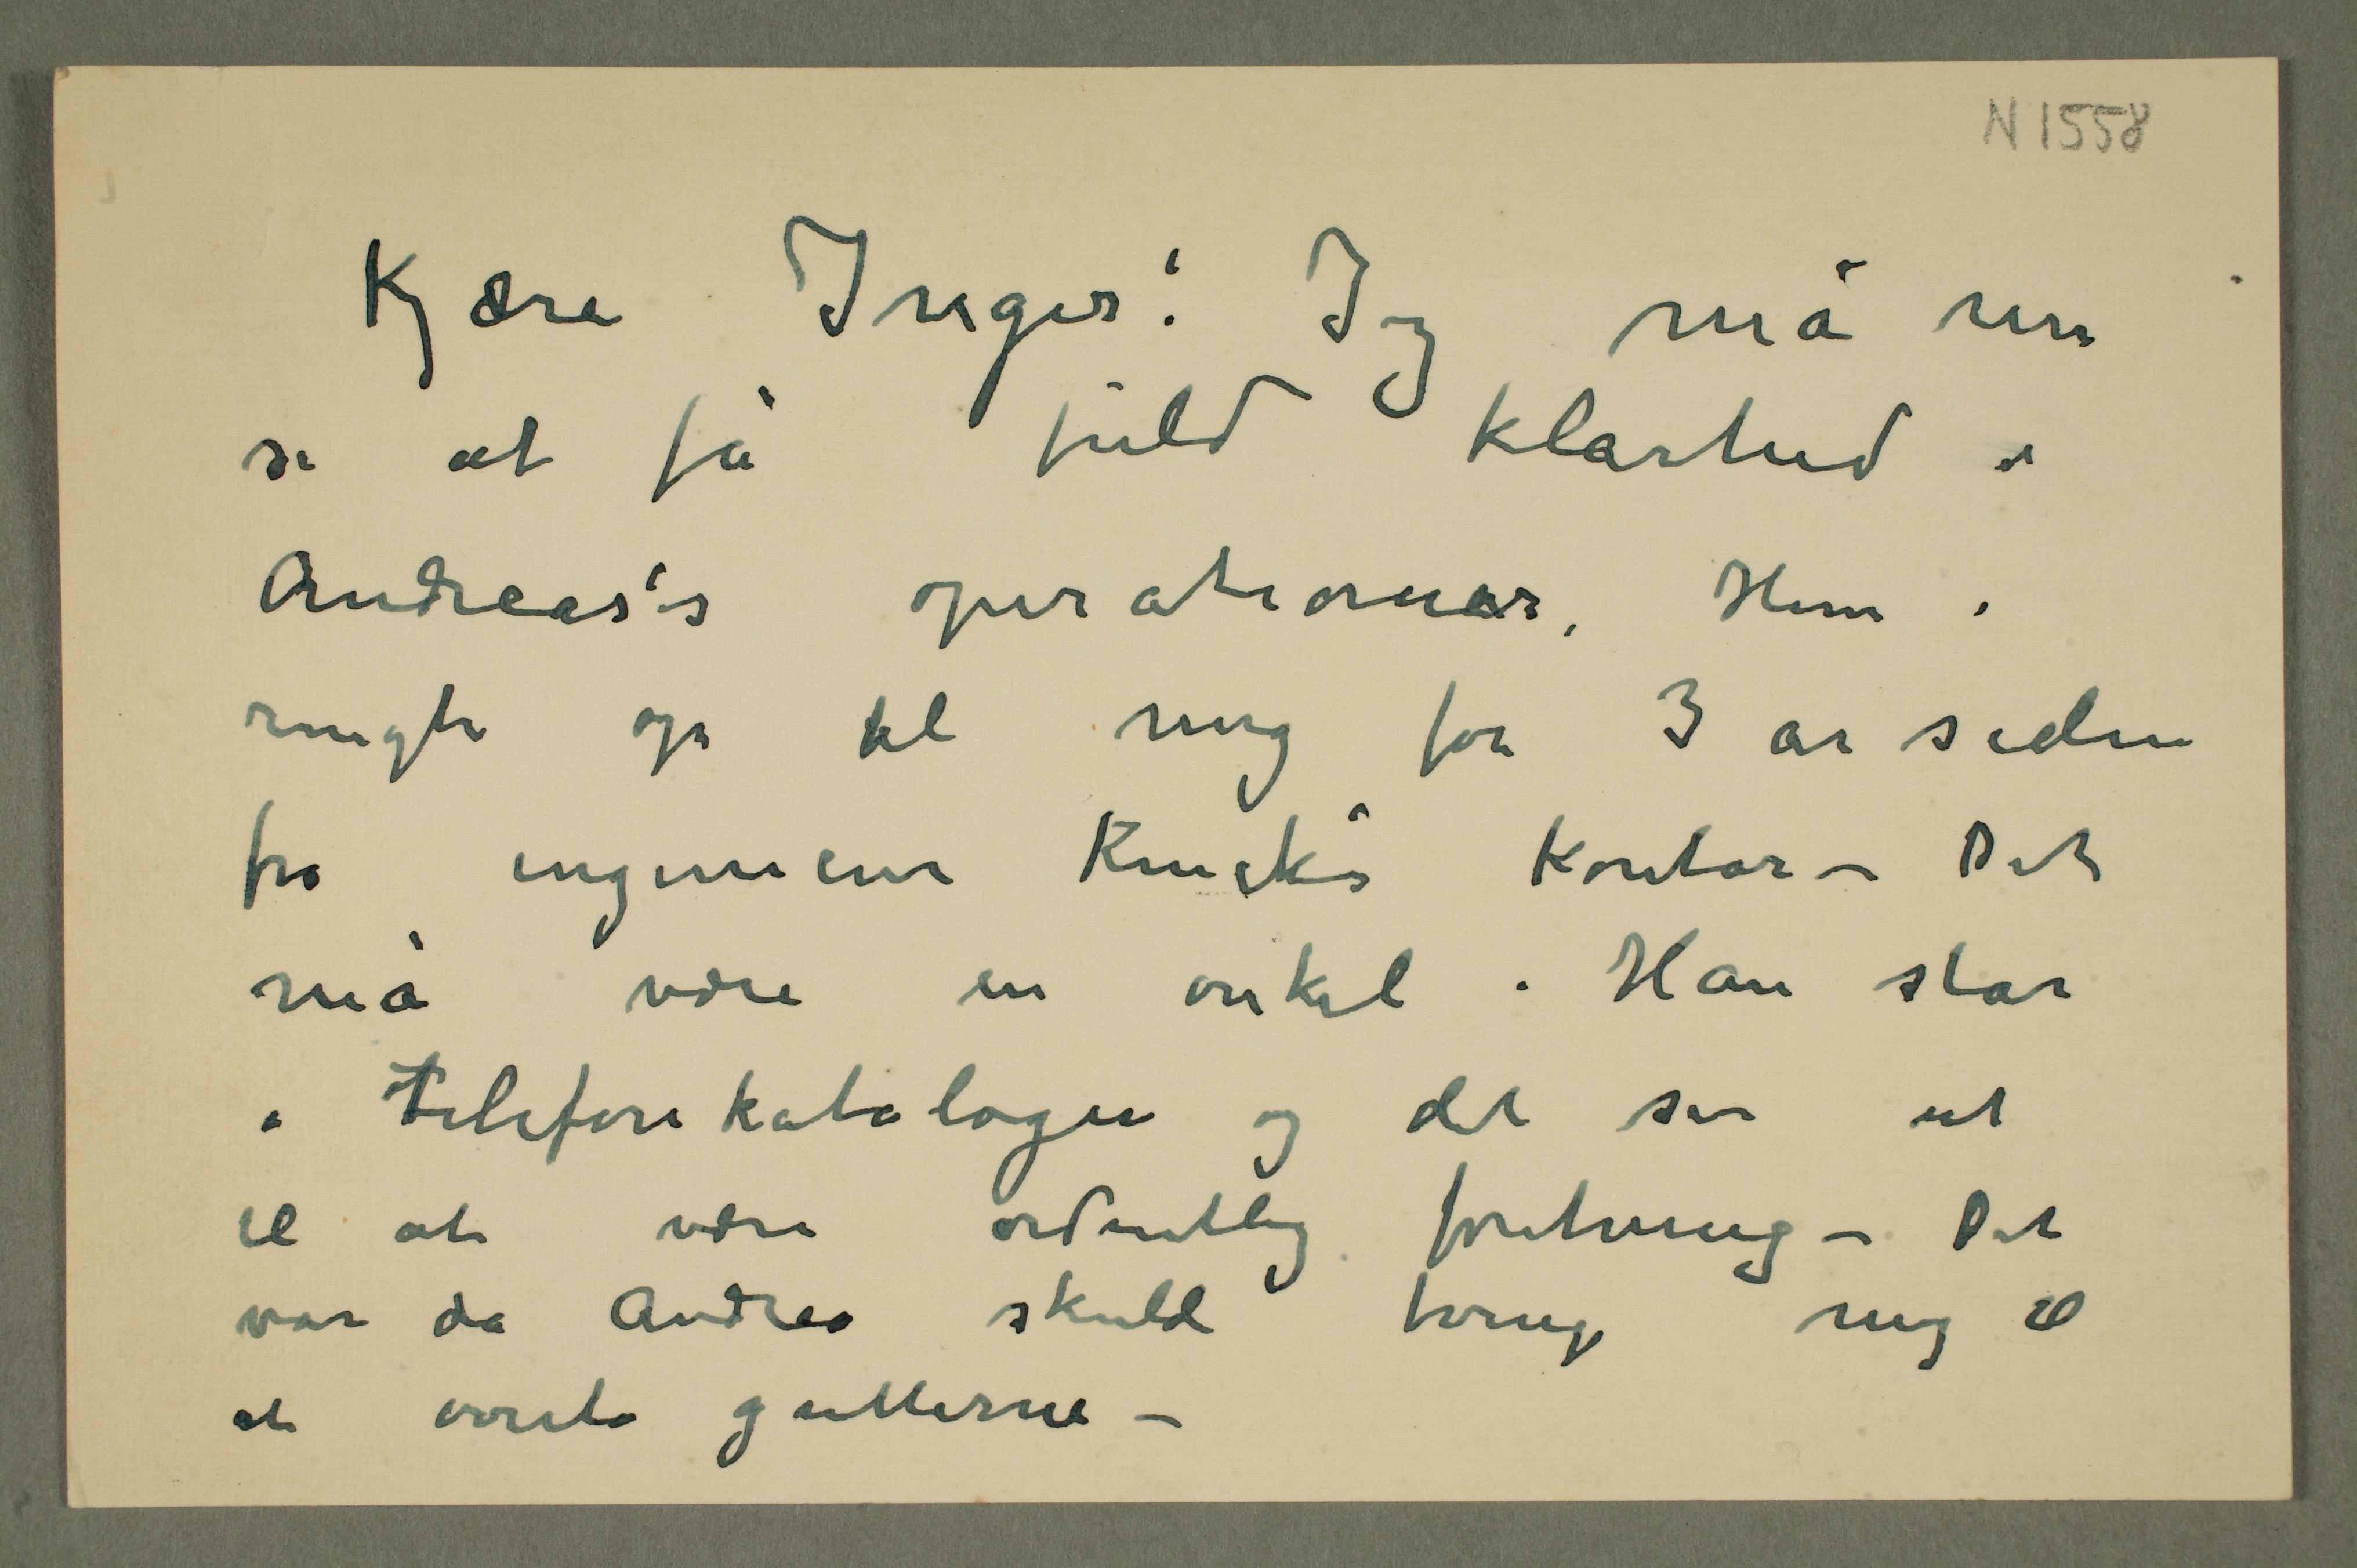 N 1558
Kjære Inger! Jeg må nu
se at få fuld klarhed i
Andreas's operationer. Hun
ringte op til mig for 3 år siden
fra ingeniør kontor – Det
må være en onkel. Han står
i Telefonkatalogen og det ser ut
til at være ordentlig foretning – Det
var da Andrea skulde tvinge mig til
at gutterne –